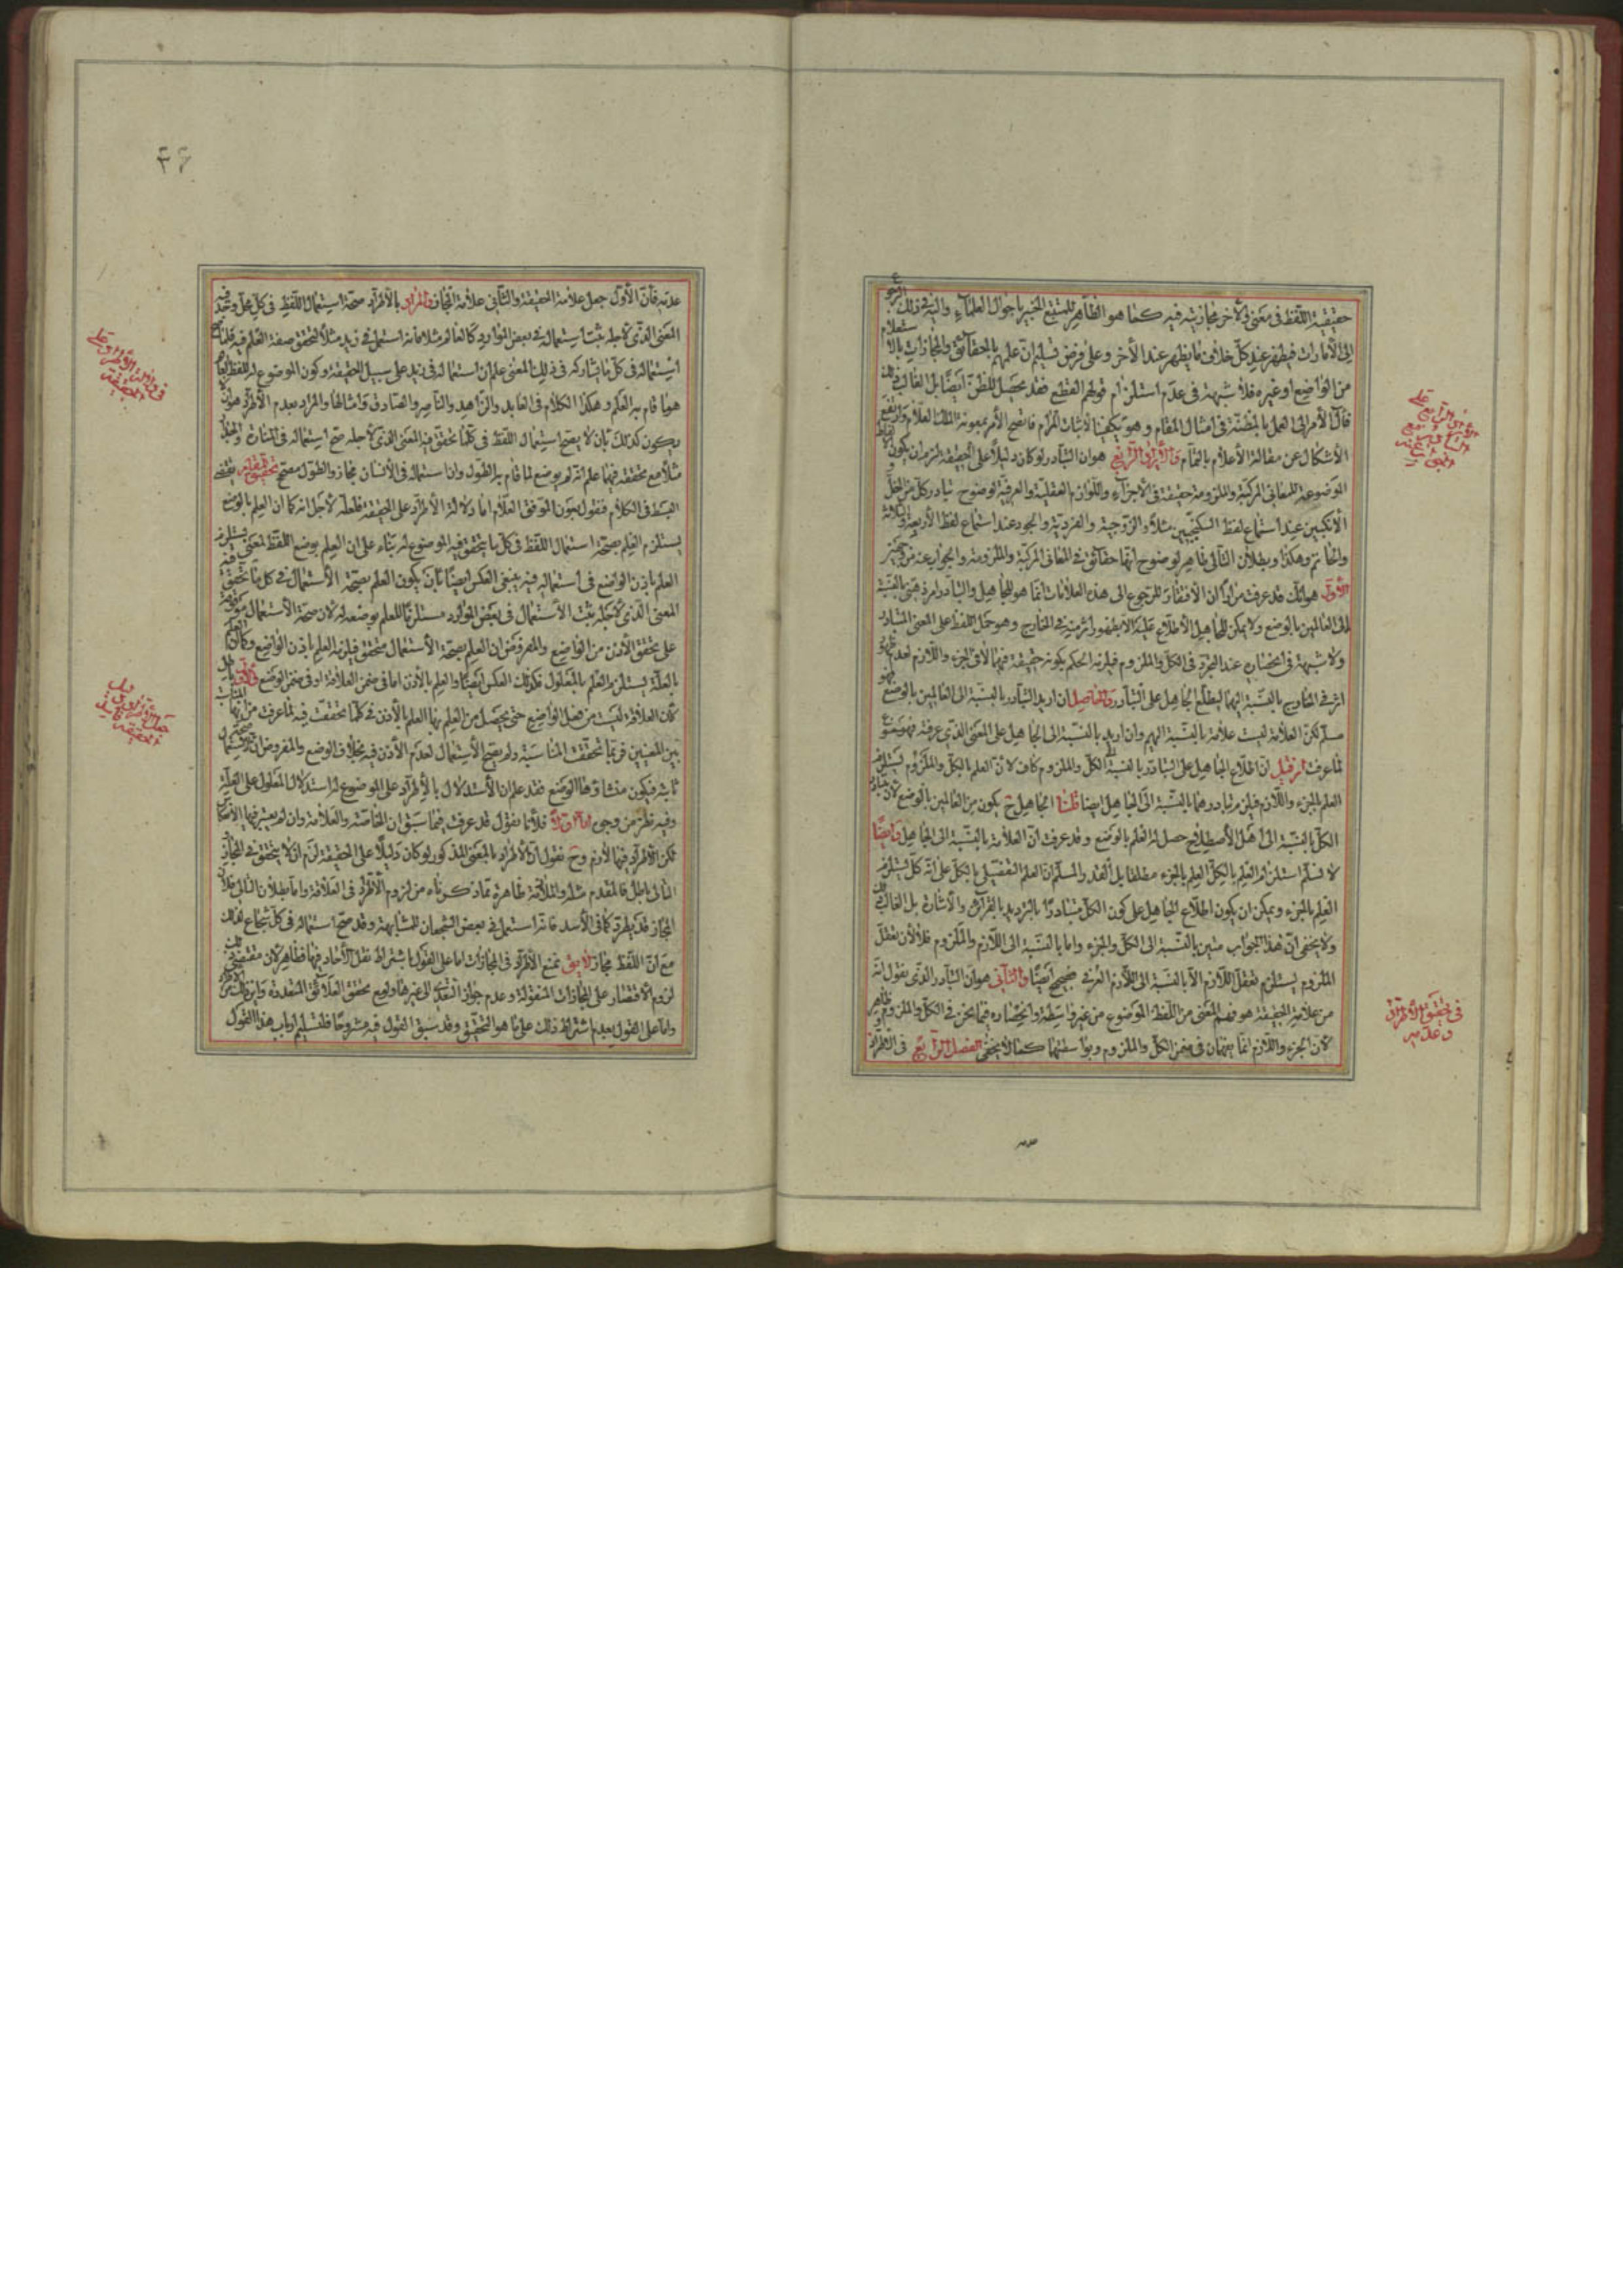 حقيقية اللفظ فى معنى والآخر مجازيته فيه كما هو الظاهر للمتتبع الخبير باحوال العلماء والسر فى ذلك الرجوع
الى الأمارات فيظهر عند كل خلاف ما يظهر عند الآخر وعلى فرض تسليم ان علمهم بالحقائق والمجازات بالاستعلام
من الواضع او غيره فلا شبهة فى عدم استلزام قولهم القطع فقد يحصل الظن ايضا بل الغالب ذلك
فآل الأمر الى العمل بالمظنة فى امثال المقام وهو يكفينا لاثبات المرام فاتضح الأمر بمعونة الملك العلام وارتفع
الأشكال عن مقالة الأعلام بالتمام والأيراد الرابع هو ان التبادر لو كان دليلا على الحقيقة لزم ان يكون الفاظ
الموضوعة للمعانى المركبة والملزومة حقيقة فى الأجزاء واللوازم العقلية والعرفية لوضوح تبادر كل من الخل و
الأنكبين عند استماع لفظ السكنجبين مثلا والزوجية والفردية والجود عند استماع لفظ الأربعة والثلاثة
والحاتم وهكذا وبطلان التالى ظاهر لوضوح انها حقائق فى المعانى المركبة والملزومة والجواب عنه من وجهين
الأول هو انك قد عرفت مرارا ان الأفتقار للرجوع الى هذه العلامات انما هو للجاهل والتبادر امر ذهنى بالنسبة
الى العالمين بالوضع ولا يمكن للجاهل الأطلاع عليه الا بظهور اثر منه فى الخارج وهو حمل اللفظ على المعنى المتبادر
ولا شبهة فى انحصاره عند التجرد فى الكل والملزوم فيلزمه الحكم بكونه حقيقة فيهما لا فى الجزء واللازم لعدم ظهور
اثر فى الخارج بالنسبة اليهما ليطلع الجاهل على التبادر والحاصل ان اريد التبادر بالنسبة الى العالمين بالوضع فهو
مسلم لكن العلامة ليست علامة بالنسبة اليهم وان اريد بالنسبة الى الجاهل على المعنى الذى عرفته فهو ممنوع
لما عرفت فان قيل ان اطلاع الجاهل على التبادر بالنسبة الى الكل والملزوم كاف لان العلم بالكل والملزوم يستلزم
العلم بالجزء واللازم فيلزم تبادرهما بالنسبة الى الجاهل ايضا قلنا الجاهل ح يكون من العالمين بالوضع لان تبادر
الكل بالنسبة الى اهل الأصطلاح حصل له العلم بالوضع وقد عرفت ان العلامة بالنسبة الى الجاهل وايضا
لا نسلم استلزام العلم بالكل العلم بالجزء مطلقا بل القدر المسلم ان العلم التفصيلى بالكل على انه كل يستلزم
العلم بالجزء ويمكن ان يكون اطلاع الجاهل على كون الكل متبادرا بالترديد بالقرائن والأشارة بل الغالب ذلك
ولا يخفى ان هذا الجواب متين بالنسبة الى الكل والجزء واما بالنسبة الى اللازم والملزوم فلا لان تعقل
الملزوم يستلزم تعقل اللازم الا بالنسبة الى اللازم العرفى صحيح ايضا والثانى هو ان التبادر الذى نقول انه
من علامة الحقيقة هو فهم المعنى من اللفظ الموضوع من غير واسطة وانحصاره فيما نحن فى الكل والملزوم ظاهر
لان الجزء واللازم انما يفهمان فى ضمن الكل والملزوم وبواسطتهما كما لا يخفى الفصل الرابع فى الاطراد و
عدمه فان الأول جعل علامة الحقيقة والثانى علامة المجاز والمراد بالاطراد صحة استعمال اللفظ فى كل محل وجد فيه
المعنى الذى لاجله ثبت استعماله فى بعض الموارد كالعالم مثلا فانه استعمل فى زيد مثلا لتحقق صفة العلم فيه فلما صح
استعماله فى كل ما يشاركه فى ذلك المعنى علم ان استعماله فى زيد على سبيل الحقيقة وكون الموضوع له للفظ العالم
هو ما قام به العلم وهكذا الكلام فى العابد والزاهد والناصر والصادق وامثالها والمراد بعدم الأطراد هو ان لا
يكون كذلك بان لا يصح استعمال اللفظ فى كلما تحقق فيه المعنى الذى لاجله صح استعماله فى المنارة والجبل
مثلا مع تحققه فيهما علم انه لم يوضع لما قام به الطول وان استعماله فى الأنسان مجاز والطول مصحح تحقيق المقام يقتضى
البسط فى الكلام فنقول بعون الموفق العلام اما دلالة الأطراد على الحقيقة فلعله لاجل انه كما ان العلم بالوضع
يستلزم العلم بصحة استعمال اللفظ فى كل ما يتحقق فيه الموضوع له بناء على ان العلم بوضع اللفظ لمعنى يستلزم
العلم باذن الواضع فى استعماله فيه ينبغى العكس ايضا بان يكون العلم بصحة الأستعمال فى كل ما تحقق فيه
المعنى الذى لاجله ثبت الأستعمال فى بعض الموارد مستلزما للعلم بوضعه له لان صحة الأستعمال موقوفة
على تحقق الأذن من الواضع والمفروض ان العلم بصحة الأستعمال متحقق فيلزمه العلم باذن الواضع وكما ان العلم
بالعلة يستلزم العلم بالمعلول فكذلك العكس ايضا والعلم بالأذن اما فى ضمن العلاقة او فى ضمن الوضع والأول باطل
لان العلاقة ليست من فعل الواضع حتى يحصل من العلم بها العلم بالأذن فى كلما تحققت فيه لما عرفت من انها المناسبة
بين المعنيين فربما تحققت المناسبة ولم يصح الأستعمال لعدم الأذن فيه بخلاف الوضع والمفروض ان صحة الأستعمال
ثابتة فيكون منشاؤها الوضع فقد علم ان الأستدلال بالأطراد على الموضوع له استدلال المعلول على العلة
وفيه نظر من وجوه اما اولا فلأنا نقول قد عرفت فيما سبق ان الخاصة والعلامة وان لم يعتبر فيهما الأنعكاس
لكن الأطراد فيهما لازم وح نقول ان الأطراد بالمعنى المذكور لو كان دليلا على الحقيقة لزم ان لا يتحقق فى المجاز
التالى باطل فالمقدم مثله والملازمة ظاهرة مما ذكرناه من لزوم الأطراد فى العلامة واما بطلان التالى فلان
المجاز قد يطرد كما فى الأسد فانه استعمل فى بعض الشجعان للمشابهة وقد صح استعماله فى كل شجاع لذلك
مع ان اللفظ مجاز لا يق نمنع الأطراد فى المجازات اما على القول باشتراط نقل الآحاد فيها فظاهر لان مقتضى ذلك
لزوم الأقتصار على المجازات المنقولة وعدم جواز التعدى الى غيرها ولو مع تحقق العلائق المتعددة واين ذلك من الأطراد
واما على القول بعدم اشتراط ذلك على ما هو التحقيق وقد سبق القول فيه مشروحا فلتسليم ارباب هذا القول
فى تحقيق الأطراد
وعدمه